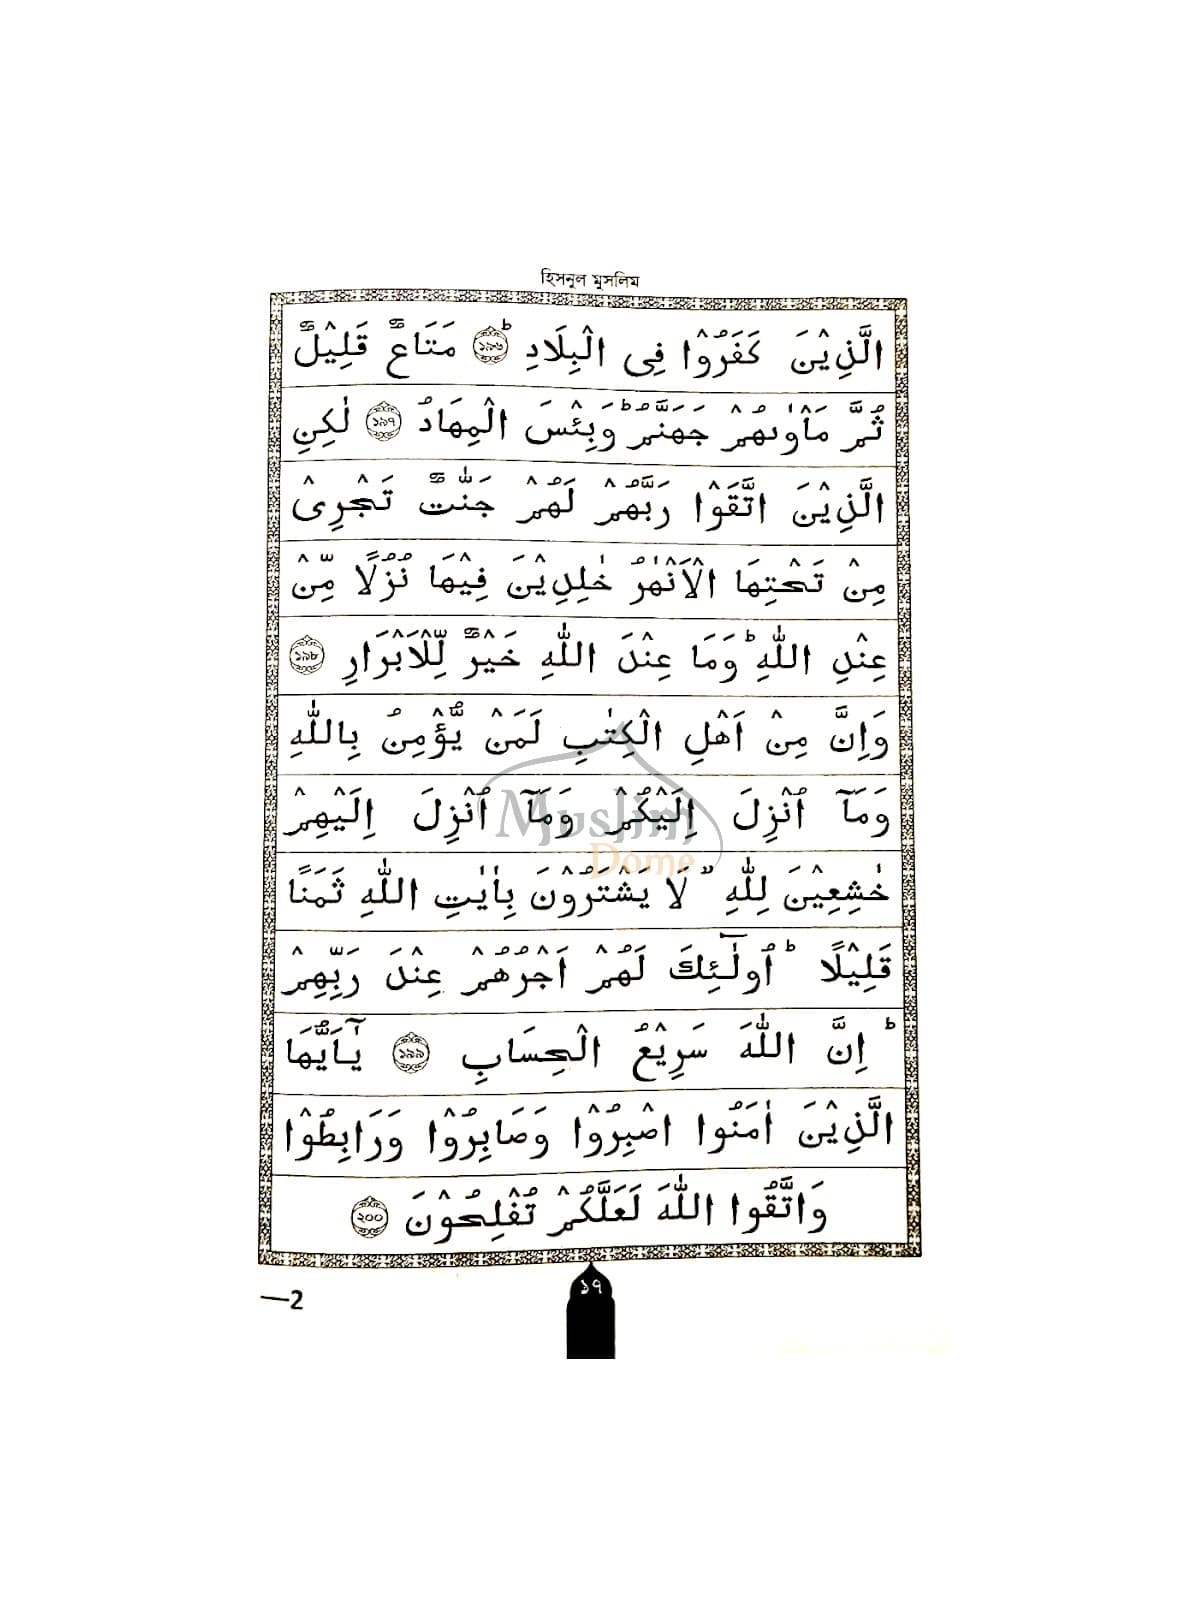 হিসনুল মুসলিম
الَّذِيْنَ كَفَرُوْا فِى الْبِلَادِ ؕ ১৯৬ مَتَاعٌ قَلِيْلٌ
ثُمَّ مَاْوٰىهُمْ جَهَنَّمُ ؕ وَبِئْسَ الْمِهَادُ ১৯৭ لٰكِنِ
الَّذِيْنَ اتَّقَوْا رَبَّهُمْ لَهُمْ جَنّٰتٌ تَجْرِىْ
مِنْ تَحْتِهَا الْاَنْهٰرُ خٰلِدِيْنَ فِيْهَا نُزُلًا مِّنْ
عِنْدِ اللّٰهِ ؕ وَمَا عِنْدَ اللّٰهِ خَيْرٌ لِّلْاَبْرَارِ ১৯৮
وَاِنَّ مِنْ اَهْلِ الْكِتٰبِ لَمَنْ يُّؤْمِنُ بِاللّٰهِ
وَمَآ اُنْزِلَ اِلَيْكُمْ وَمَآ اُنْزِلَ اِلَيْهِمْ
خٰشِعِيْنَ لِلّٰهِ ۙ لَا يَشْتَرُوْنَ بِاٰيٰتِ اللّٰهِ ثَمَنًا
قَلِيْلًا ؕ اُولٰٓئِكَ لَهُمْ اَجْرُهُمْ عِنْدَ رَبِّهِمْ
ؕ اِنَّ اللّٰهَ سَرِيْعُ الْحِسَابِ ১৯৯ يٰٓاَيُّهَا
الَّذِيْنَ اٰمَنُوا اصْبِرُوْا وَصَابِرُوْا وَرَابِطُوْا
وَاتَّقُوا اللّٰهَ لَعَلَّكُمْ تُفْلِحُوْنَ ২০০
Muslim
Dome
১৭
—2